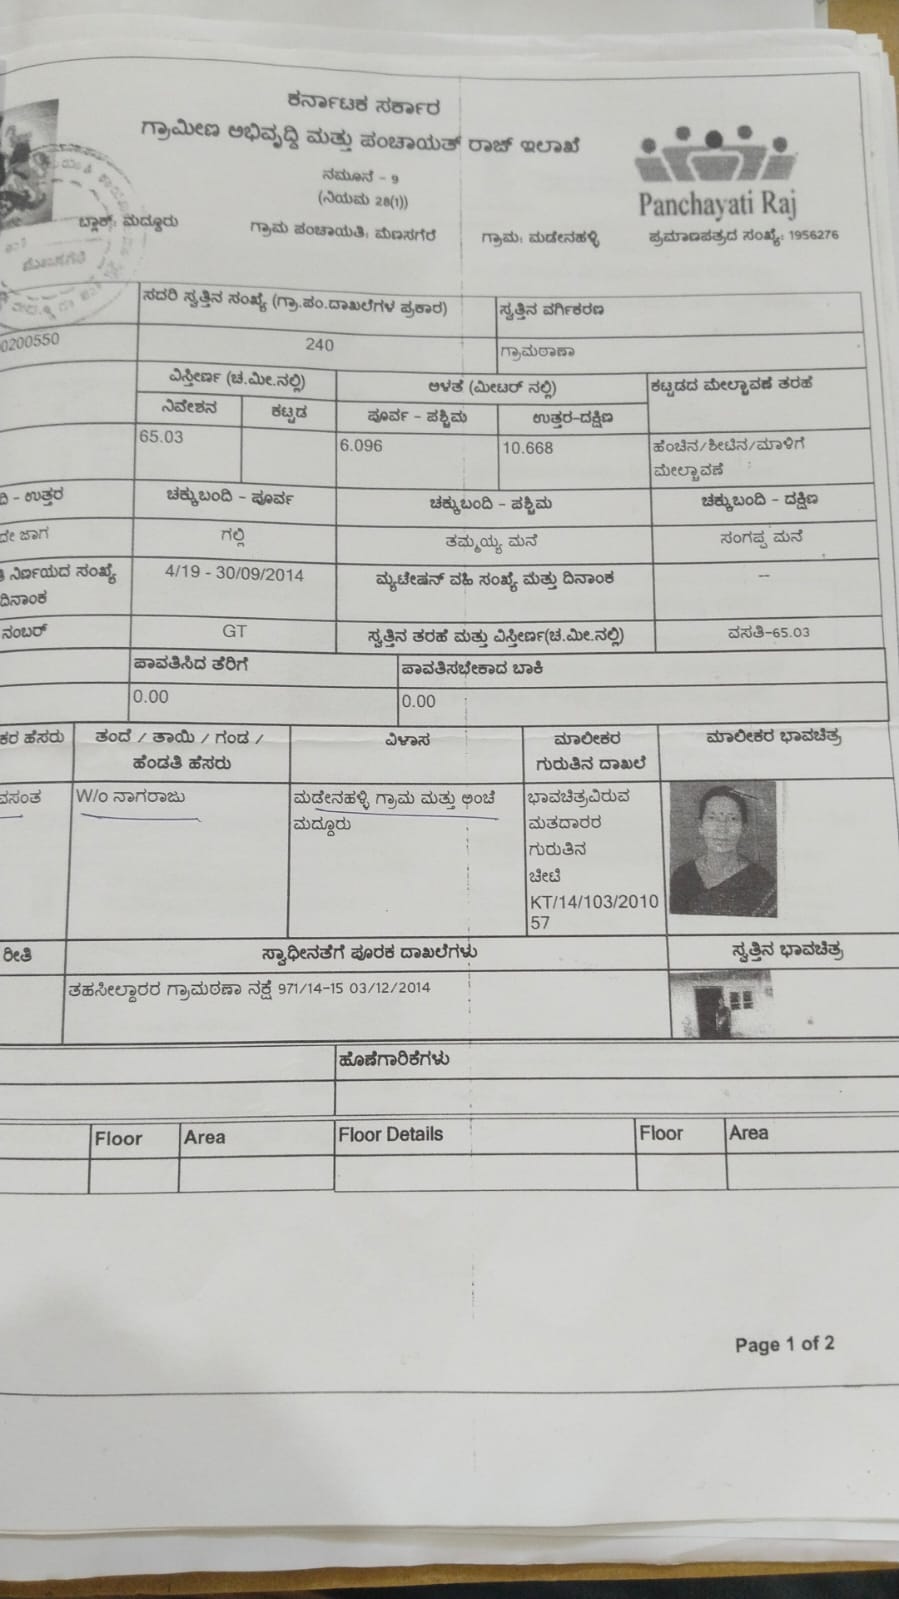 ಕರ್ನಾಟಕ ಸರ್ಕಾರ
ಗ್ರಾಮೀಣ ಅಭಿವೃದ್ಧಿ ಮತ್ತು ಪಂಚಾಯತ್ ರಾಜ್ ಇಲಾಖೆ
ನಮೂನೆ - 9
(ನಿಯಮ 28(1))
Panchayati Raj
ಬ್ಲಾಕ್: ಮದ್ದೂರು ಗ್ರಾಮ ಪಂಚಾಯತಿ: ಮೆಣಸಗೆರೆ ಗ್ರಾಮ: ಮಡೇನಹಳ್ಳಿ ಪ್ರಮಾಣಪತ್ರದ ಸಂಖ್ಯೆ: 1956276
ಸದರಿ ಸ್ವತ್ತಿನ ಸಂಖ್ಯೆ (ಗ್ರಾ.ಪಂ.ದಾಖಲೆಗಳ ಪ್ರಕಾರ) ಸ್ವತ್ತಿನ ವರ್ಗಿಕರಣ
0200550 240 ಗ್ರಾಮಠಾಣಾ
ವಿಸ್ತೀರ್ಣ (ಚ.ಮೀ.ನಲ್ಲಿ) ಅಳತೆ (ಮೀಟರ್ ನಲ್ಲಿ) ಕಟ್ಟಡದ ಮೇಲ್ಚಾವಣೆ ತರಹೆ
ನಿವೇಶನ ಕಟ್ಟಡ ಪೂರ್ವ - ಪಶ್ಚಿಮ ಉತ್ತರ-ದಕ್ಷಿಣ
65.03 6.096 10.668 ಹೆಂಚಿನ/ಶೀಟಿನ/ಮಾಳಿಗೆ
ಮೇಲ್ಚಾವಣೆ
ದಿ - ಉತ್ತರ ಚಕ್ಕುಬಂದಿ - ಪೂರ್ವ ಚಕ್ಕುಬಂದಿ - ಪಶ್ಚಿಮ ಚಕ್ಕುಬಂದಿ - ದಕ್ಷಿಣ
ದೇ ಜಾಗ ಗಲ್ಲಿ ತಮ್ಮಯ್ಯ ಮನೆ ಸಂಗಪ್ಪ ಮನೆ
ತಿ ನಿರ್ಣಯದ ಸಂಖ್ಯೆ 4/19 - 30/09/2014 ಮ್ಯಟೇಷನ್ ವಹಿ ಸಂಖ್ಯೆ ಮತ್ತು ದಿನಾಂಕ --
ದಿನಾಂಕ
ನಂಬರ್ GT ಸ್ವತ್ತಿನ ತರಹೆ ಮತ್ತು ವಿಸ್ತೀರ್ಣ(ಚ.ಮೀ.ನಲ್ಲಿ) ವಸತಿ-65.03
ಪಾವತಿಸಿದ ತೆರಿಗೆ ಪಾವತಿಸಬೇಕಾದ ಬಾಕಿ
0.00 0.00
ಕರ ಹೆಸರು ತಂದೆ / ತಾಯಿ / ಗಂಡ / ವಿಳಾಸ ಮಾಲೀಕರ ಮಾಲೀಕರ ಭಾವಚಿತ್ರ
ಹೆಂಡತಿ ಹೆಸರು ಗುರುತಿನ ದಾಖಲೆ
ವಸಂತ W/o ನಾಗರಾಜು ಮಡೇನಹಳ್ಳಿ ಗ್ರಾಮ ಮತ್ತು ಅಂಚೆ ಭಾವಚಿತ್ರವಿರುವ
ಮದ್ದೂರು ಮತದಾರರ
ಗುರುತಿನ
ಚೀಟಿ
KT/14/103/2010
57
ರೀತಿ ಸ್ವಾಧೀನತೆಗೆ ಪೂರಕ ದಾಖಲೆಗಳು ಸ್ವತ್ತಿನ ಭಾವಚಿತ್ರ
ತಹಸೀಲ್ದಾರರ ಗ್ರಾಮಠಣಾ ನಕ್ಷೆ 971/14-15 03/12/2014
ಹೊಣೆಗಾರಿಕೆಗಳು
Floor Area Floor Details Floor Area
Page 1 of 2